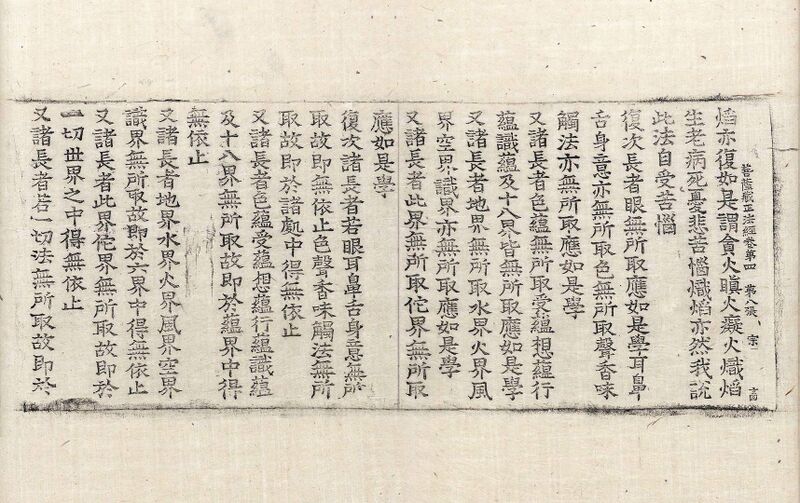 菩薩藏正法經卷第四 第八張 宗
焰亦復如是謂貪火瞋火癡火熾焰
生老病死憂悲苦惱熾焰亦然我說
此法自受苦惱
復次諸長者眼無所取應如是學耳鼻
舌身意亦無所取色無所取聲香味
觸法亦無所取應如是學
又諸長者色蘊無所取受蘊想蘊行
蘊識蘊及十八界皆無所取應如是學
又諸長者地界無所取水界火界風
界空界識界亦無所取應如是學
又諸長者此界無所取佗界無所取
應如是學
復次諸長者若眼耳鼻舌身意無所
取故即無依止色聲香味觸法無所
取故即於諸處中得無依止
又諸長者色蘊受蘊想蘊行蘊識蘊
及十八界無所取故即於蘊界中得
無依止
又諸長者地界水界火界風界空界
識界無所取故即於六界中得無依止
又諸長者此界佗界無所取故即於
一切世界之中得無依止
又諸長者若一切法無所取故即於